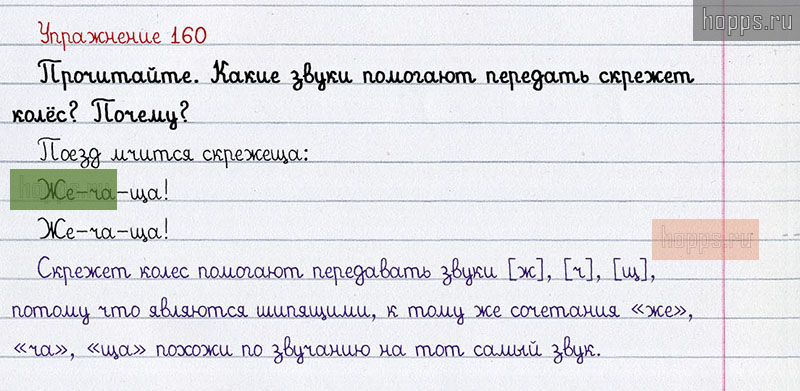 hopps.ru
Упражнение 160
Прочитайте. Какие звуки помогают передать скрежет
колёс? Почему?
Поезд мчится скрежеща:
Же-ча-ща!
Же-ча-ща!
hopps.ru
Скрежет колес помогают передавать звуки [ж], [ч], [щ],
потому что являются шипящими, к тому же сочетания «же»,
«ча», «ща» похожи по звучанию на тот самый звук.